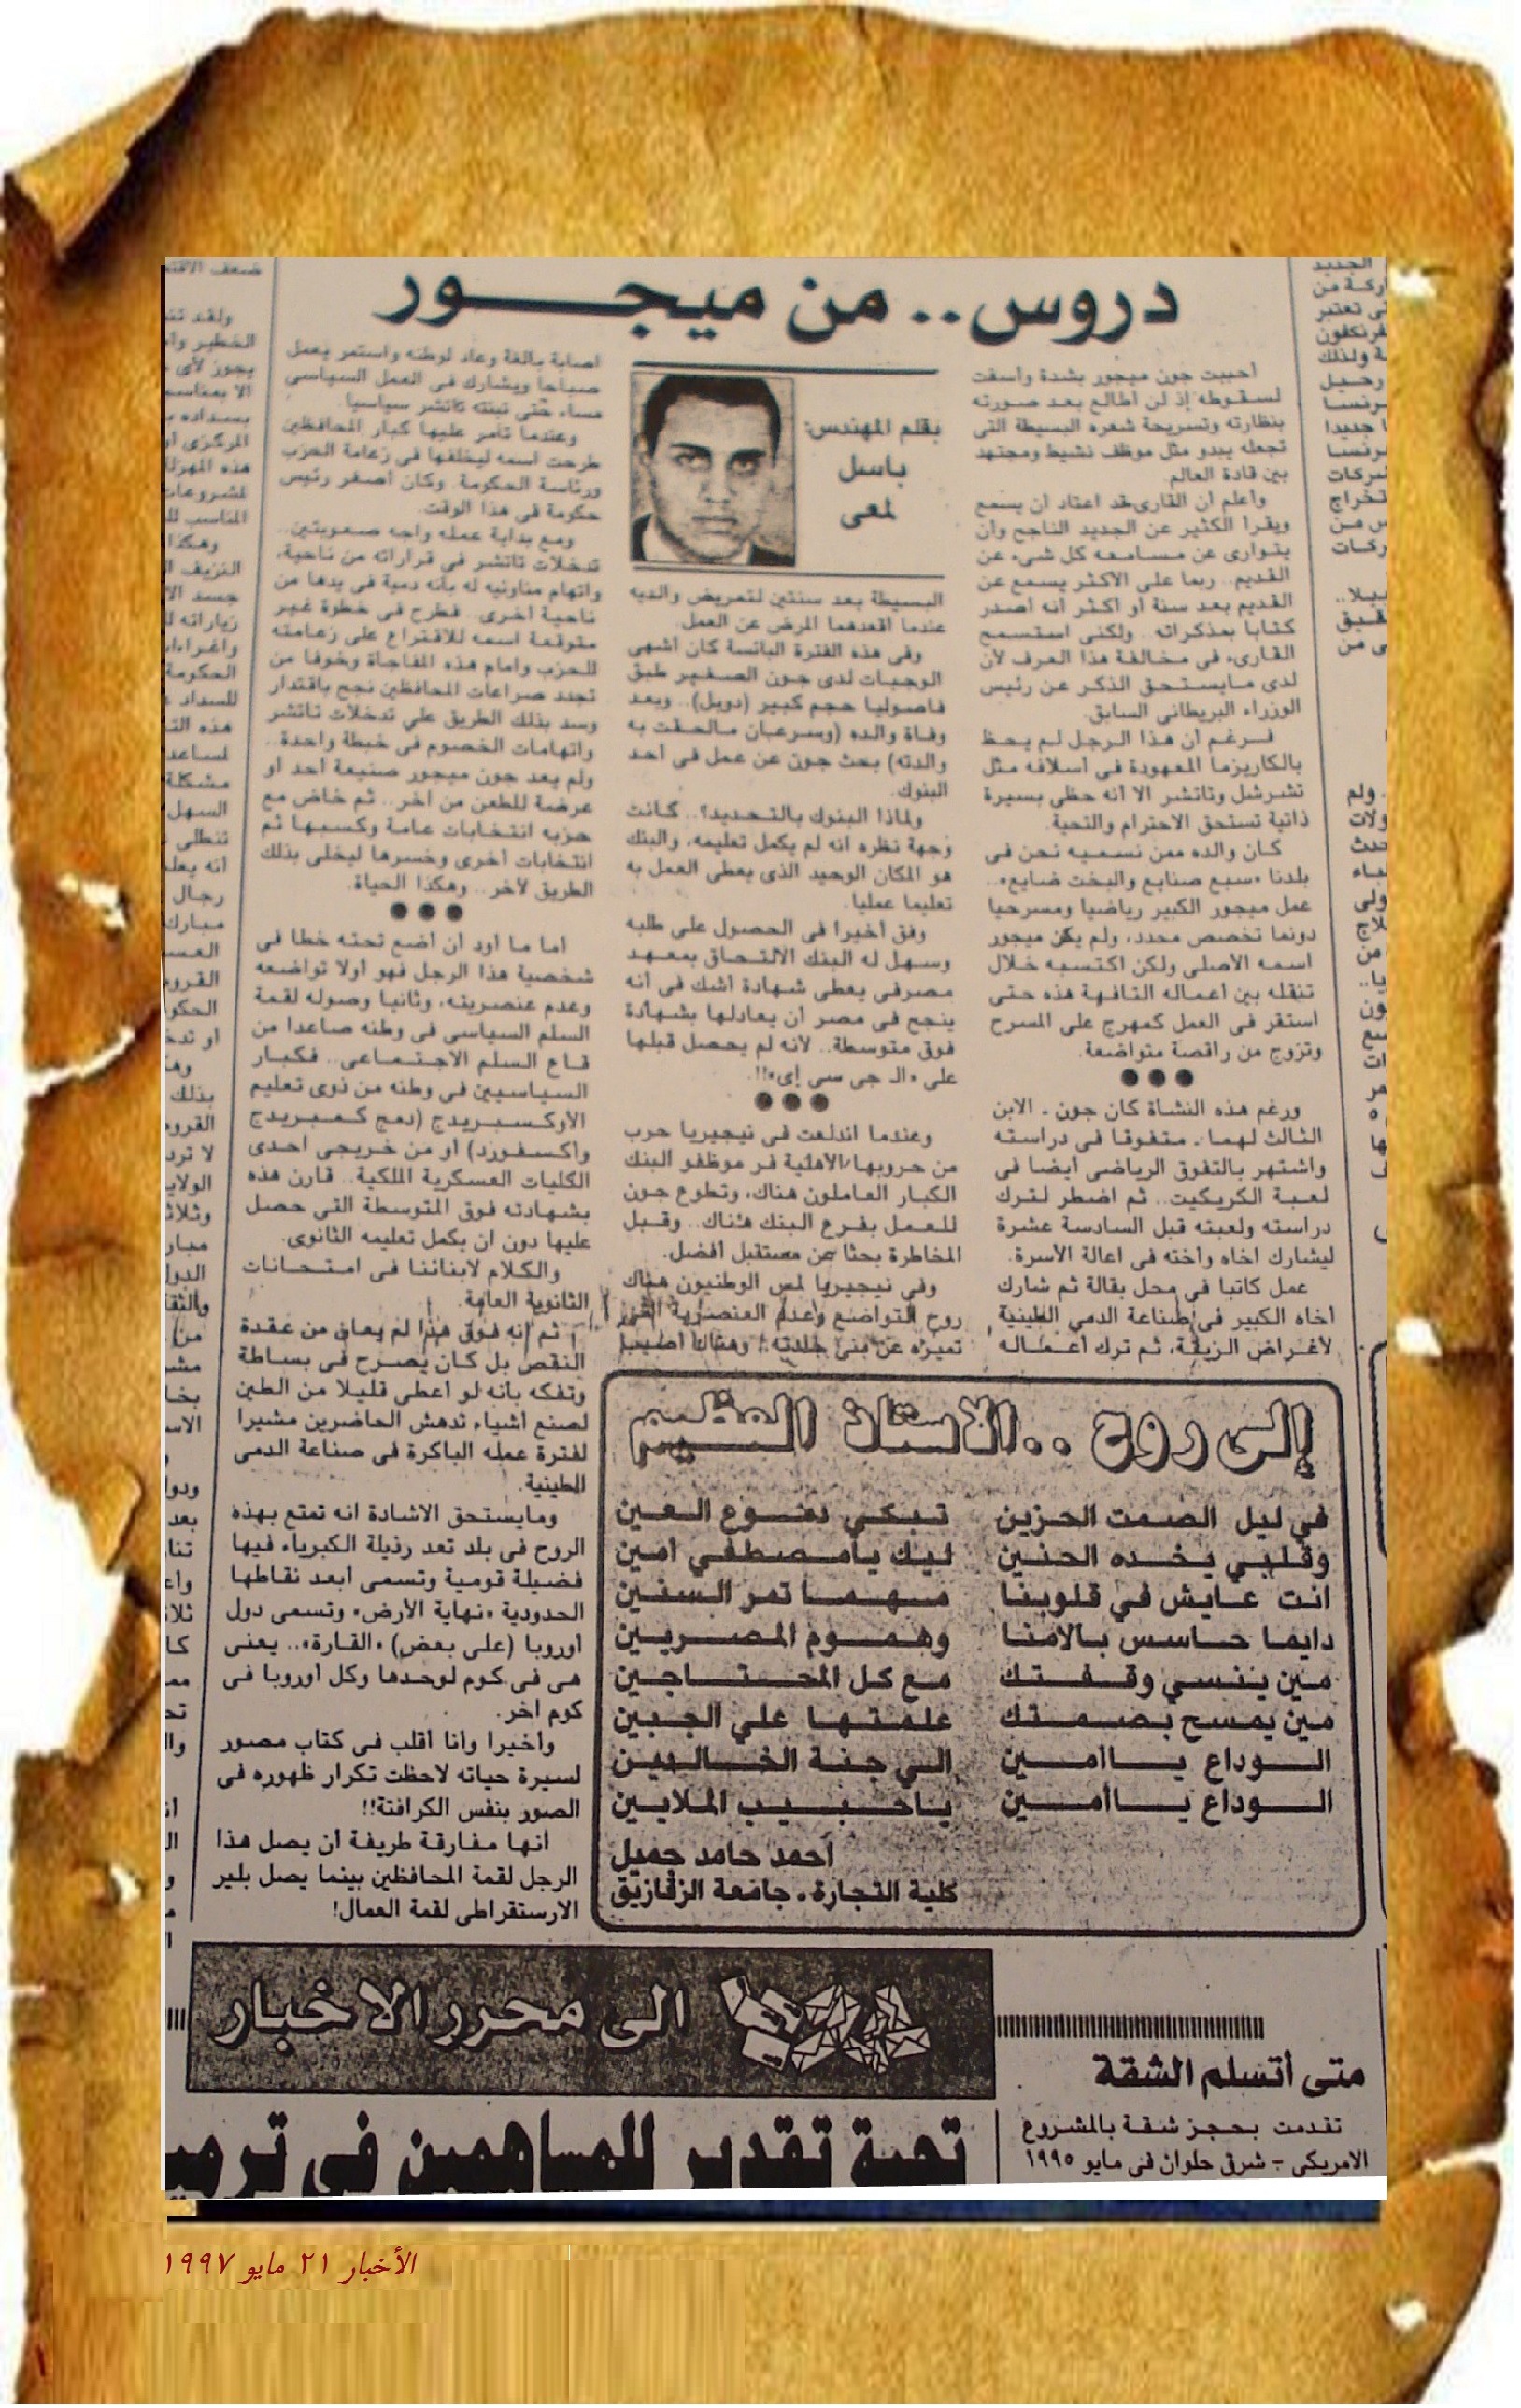 دروس.. من ميجــور
بقلم المهندس:
باسل
لمعى
أحببت جون ميجور بشدة وأسفت
لسقوطه إذ لن أطالع بعد صورته
بنظارته وتسريحة شعره البسيطة التى
تجعله يبدو مثل موظف نشيط ومجتهد
بين قادة العالم.
وأعلم أن القارىء قد اعتاد أن يسمع
ويقرأ الكثير عن الجديد الناجح وأن
يتوارى عن مسامعه كل شىء عن
القديم.. ربما على الأكثر يسمع عن
القديم بعد سنة أو أكثر أنه أصدر
كتابا بمذكراته.. ولكنى استسمح
القارىء فى مخالفة هذا العرف لأن
لدى مايستحق الذكر عن رئيس
الوزراء البريطانى السابق.
فرغم أن هذا الرجل لم يحظ
بالكاريزما المعهودة فى أسلافه مثل
تشرشل وتاتشر الا أنه حظى بسيرة
ذاتية تستحق الاحترام والتحية.
كان والده ممن نسميه نحن فى
بلدنا «سبع صنايع والبخت ضايع»..
عمل ميجور الكبير رياضيا ومسرحيا
دونما تخصص محدد، ولم يكن ميجور
اسمه الأصلى ولكن اكتسبه خلال
تنقله بين أعماله التافهة هذه حتى
استقر فى العمل كمهرج على المسرح
وتزوج من راقصة متواضعة.
●●●
ورغم هذه النشأة كان جون - الابن
الثالث لهما - متفوقا فى دراسته
واشتهر بالتفوق الرياضى أيضا فى
لعبة الكريكيت.. ثم اضطر لترك
دراسته ولعبته قبل السادسة عشرة
ليشارك أخاه وأخته فى اعالة الأسرة.
عمل كاتبا فى محل بقالة ثم شارك
أخاه الكبير فى صناعة الدمي الطينية
لأغراض الزينة، ثم ترك أعماله
البسيطة بعد سنتين لتمريض والديه
عندما أقعدهما المرض عن العمل.
وفى هذه الفترة البائسة كان أشهى
الوجبات لدى جون الصغير طبق
فاصوليا حجم كبير (دوبل).. وبعد
وفاة والده (وسرعان مالحقت به
والدته) بحث جون عن عمل فى أحد
البنوك.
ولماذا البنوك بالتحديد؟.. كانت
وجهة نظره انه لم يكمل تعليمه، والبنك
هو المكان الوحيد الذى يعطى العمل به
تعليما عمليا.
وفق أخيرا فى الحصول على طلبه
وسهل له البنك الالتحاق بمعهد
مصرفى يعطى شهادة أشك فى أنه
ينجح فى مصر أن يعادلها بشهادة
فوق متوسطة.. لأنه لم يحصل قبلها
على «الـ جى سى إى»!!.
●●●
وعندما اندلعت فى نيجيريا حرب
من حروبها الأهلية فر موظفو البنك
الكبار العاملون هناك، وتطوع جون
للعمل بفرع البنك هناك.. وقبل
المخاطرة بحثا عن مستقبل أفضل.
وفي نيجيريا لمس الوطنيون هناك
روح التواضع وعدم العنصرية التى
تميزه عن بنى جلدته؛ وهناك أصيب
اصابة بالغة وعاد لوطنه واستمر يعمل
صباحا ويشارك فى العمل السياسى
مساء حتى تبنته تاتشر سياسيا.
وعندما تآمر عليها كبار المحافظين
طرحت اسمه ليخلفها فى زعامة الحزب
ورئاسة الحكومة. وكان أصغر رئيس
حكومة فى هذا الوقت.
ومع بداية عمله واجه صعوبتين..
تدخلات تاتشر فى قراراته من ناحية،
واتهام مناوئيه له بأنه دمية فى يدها من
ناحية أخرى.. فطرح فى خطوة غير
متوقعة اسمه للاقتراع على زعامته
للحزب وأمام هذه المفاجأة وخوفا من
تجدد صراعات المحافظين نجح باقتدار
وسد بذلك الطريق علي تدخلات تاتشر
واتهامات الخصوم فى خبطة واحدة..
ولم يعد جون ميجور صنيعة أحد أو
عرضة للطعن من آخر.. ثم خاض مع
حزبه انتخابات عامة وكسبها ثم
انتخابات أخرى وخسرها ليخلى بذلك
الطريق لآخر.. وهكذا الحياة.
●●●
أما ما أود أن أضع تحته خطا فى
شخصية هذا الرجل فهو أولا تواضعه
وعدم عنصريته، وثانيا وصوله لقمة
السلم السياسى فى وطنه صاعدا من
قاع السلم الاجتماعى.. فكبار
السياسيين فى وطنه من ذوى تعليم
الأوكسبريدج (دمج كمبريدج
وأكسفورد) أو من خريجى احدى
الكليات العسكرية الملكية.. قارن هذه
بشهادته فوق المتوسطة التى حصل
عليها دون أن يكمل تعليمه الثانوى.
والكلام لأبنائنا فى امتحانات
الثانوية العامة.
ثم إنه فوق هذا لم يعان من عقدة
النقص بل كان يصرح فى بساطة
وتفكه بأنه لو أعطى قليلا من الطين
لصنع أشياء تدهش الحاضرين مشيرا
لفترة عمله الباكرة فى صناعة الدمى
الطينية.
ومايستحق الاشادة انه تمتع بهذه
الروح فى بلد تعد رذيلة الكبرياء فيها
فضيلة قومية وتسمى أبعد نقاطها
الحدودية «نهاية الأرض» وتسمى دول
أوروبا (على بعض) «القارة».. يعنى
هى فى كوم لوحدها وكل أوروبا فى
كوم آخر.
وأخيرا وأنا أقلب فى كتاب مصور
لسيرة حياته لاحظت تكرار ظهوره فى
الصور بنفس الكرافتة!!
انها مفارقة طريفة أن يصل هذا
الرجل لقمة المحافظين بينما يصل بلير
الارستقراطى لقمة العمال!
إلى روح ..الاستاذ العظيم
في ليل الصمت الحزين تبكي دموع العين
وقلبي يخده الحنين ليك يامصطفي أمين
انت عايش في قلوبنا مهما تمر السنين
دايما حاسس بالامنا وهموم المصريين
مين ينسي وقفتك مع كل المحتاجين
مين يمسح بصمتك علمتها علي الجبين
الوداع ياأمين الي جنة الخالدين
الوداع ياأمين ياحبيب الملايين
أحمد حامد جميل
كلية التجارة - جامعة الزقازيق
الى محرر الاخبار
متى أتسلم الشقة
تقدمت بحجز شقة بالمشروع
الامريكى - شرق حلوان فى مايو ١٩٩٥
تحية تقدير للمساهمين فى
الأخبار ٢١ مايو ١٩٩٧
١